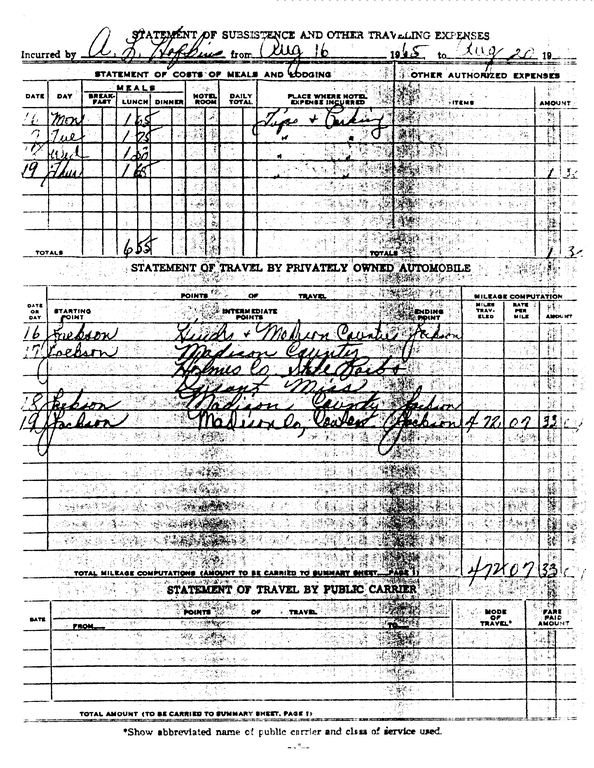 STATEMENT OF SUBSISTENCE AND OTHER TRAVELING EXPENSES
Incurred by A. L. Hopkins from Aug 16 1965 to Aug 20 19
STATEMENT OF COSTS OF MEALS AND LODGING OTHER AUTHORIZED EXPENSES
MEALS
DATE DAY BREAK-FAST LUNCH DINNER HOTEL ROOM DAILY TOTAL PLACE WHERE HOTEL EXPENSE INCURRED ITEMS AMOUNT
16 Mon 1 65 Tips & Parking
Tue 1 75 " "
Wed 1 50 " "
19 Thur 1 65 1 3
TOTALS 6 55 TOTALS 1 3
STATEMENT OF TRAVEL BY PRIVATELY OWNED AUTOMOBILE
POINTS OF TRAVEL MILEAGE COMPUTATION
DATE OR DAY STARTING POINT INTERMEDIATE POINTS ENDING POINT MILES TRAV-ELED RATE PER MILE AMOUNT
16 Jackson Hinds & Madison Counties Jackson
17 Jackson Madison County
Holmes Co,
Durant Miss
18 Jackson Madison County Jackson
19 Jackson Madison Co, Canton Jackson 472 07 33
TOTAL MILEAGE COMPUTATIONS (AMOUNT TO BE CARRIED TO SUMMARY SHEET, PAGE 1) 472 07 33
STATEMENT OF TRAVEL BY PUBLIC CARRIER
DATE POINTS OF TRAVEL MODE OF TRAVEL* FARE PAID AMOUNT
FROM TO
TOTAL AMOUNT (TO BE CARRIED TO SUMMARY SHEET, PAGE 1)
*Show abbreviated name of public carrier and class of service used.